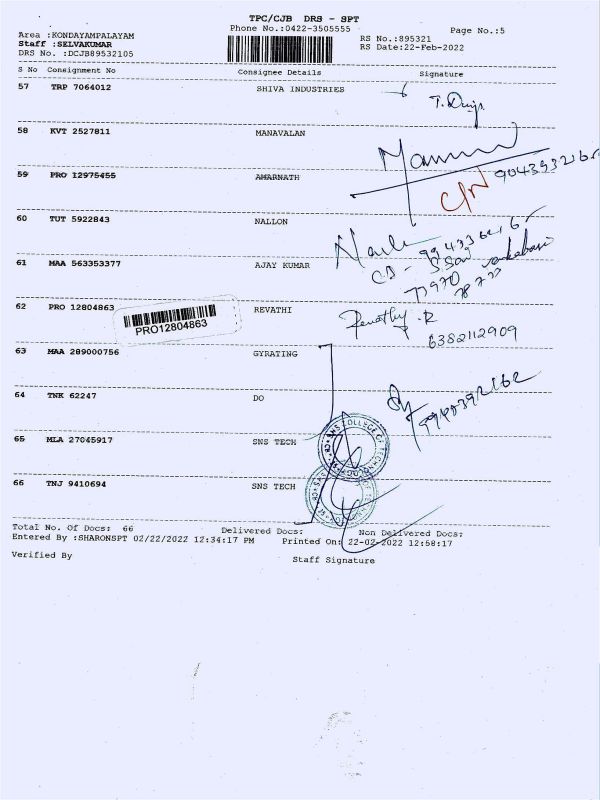 TPC/CJB DRS - SPT
Phone No.:0422-3505555
Page No.:5
Area :KONDAYAMPALAYAM
RS No.:895321
Staff :SELVAKUMAR
RS Date:22-Feb-2022
DRS No. :DCJB89532105
S No Consignment No Consignee Details Signature
57 TRP 7064012 SHIVA INDUSTRIES
58 KVT 2527811 MANAVALAN
59 PRO 12975455 AMARNATH
60 TUT 5922843 NALLON
61 MAA 563353377 AJAY KUMAR
62 PRO 12804863 REVATHI
PRO12804863
Revathy . R
6382112909
63 MAA 289000756 GYRATING
64 TNK 62247 DO
65 MLA 27045917 SNS TECH
66 TNJ 9410694 SNS TECH
Total No. Of Docs: 66 Delivered Docs: Non Delivered Docs:
Entered By :SHARONSPT 02/22/2022 12:34:17 PM Printed On: 22-02-2022 12:58:17
Verified By Staff Signature